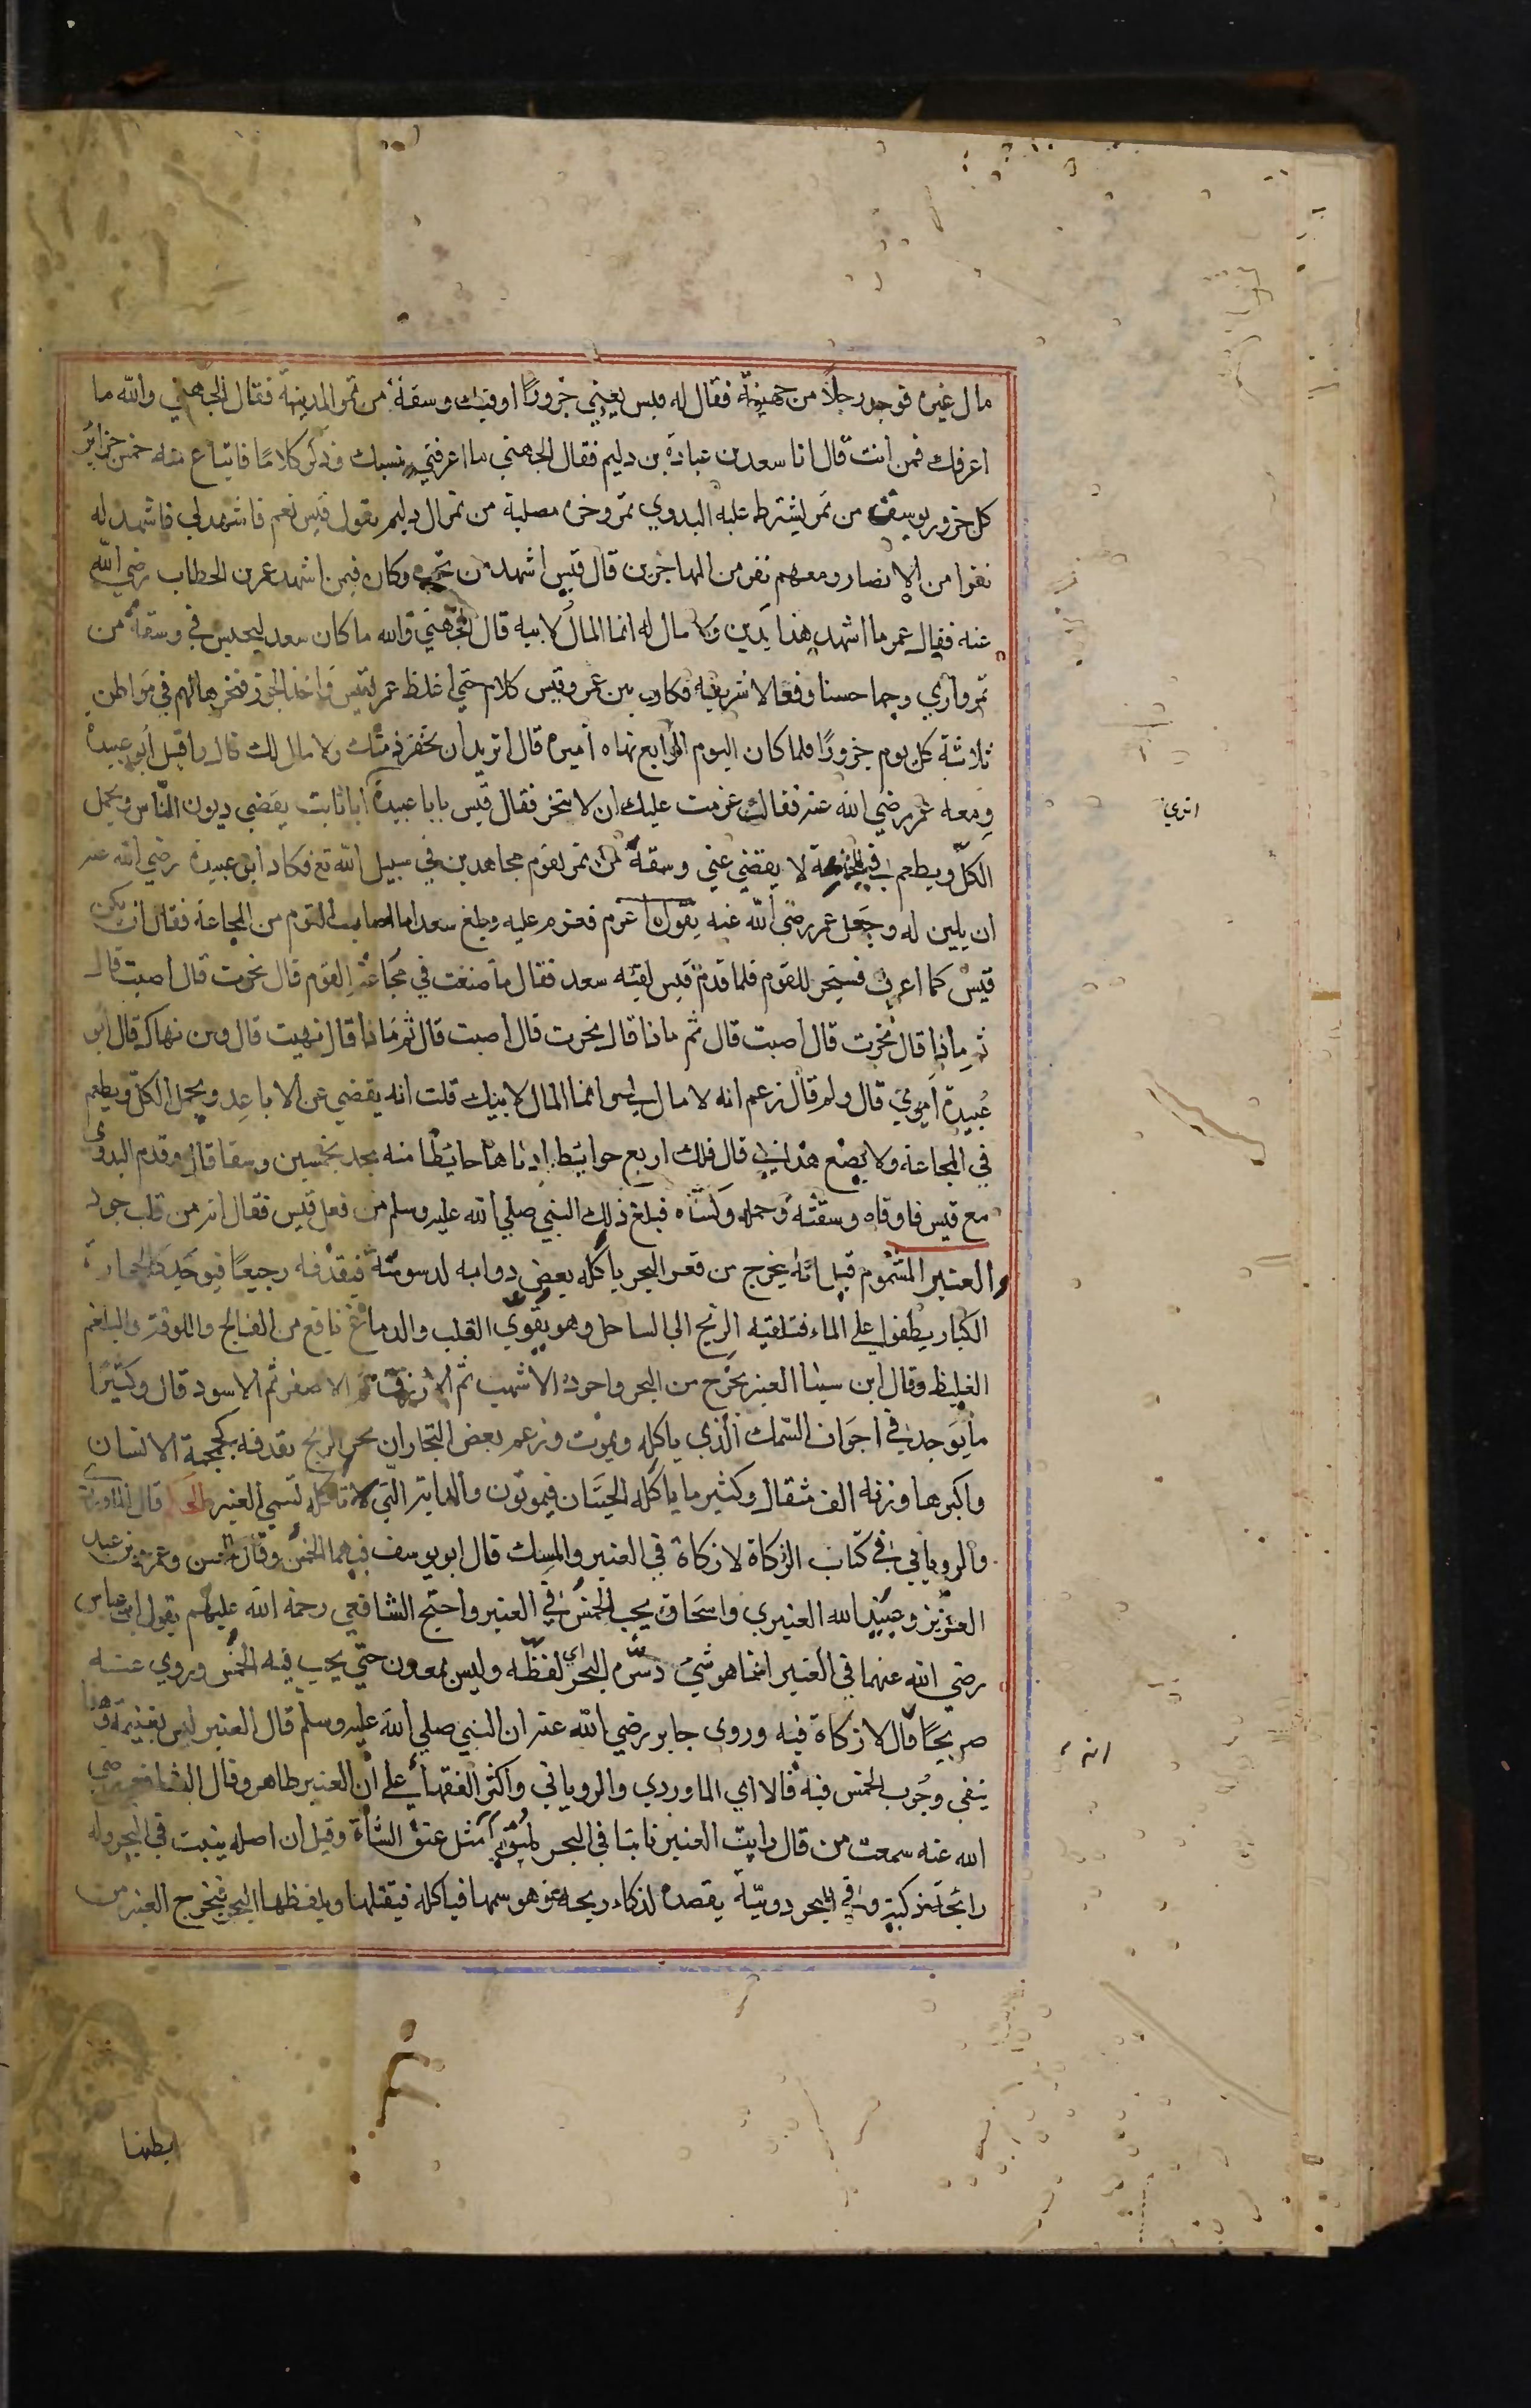 مال غيره فوجد رجلًا من جهينة فقال له قيس بعني جزورًا اوفيك وسقة من تمر المدينة فقال الجهني والله ما
اعرفك فمن انت قال انا سعد بن عبادة بن دليم فقال الجهني ما اعرفني بنسبك وذكر كلامًا فابتاع منه خمس جزائر
كل جزور بوسق من تمر يشترط عليه البدوي تمر وخره مصلبة من تمر ال دليم يقول قيس نعم فاشهد لي فاشهد له
نفرا من الانصار ومعهم نفر من المهاجرين قال قيس اشهد من تحب وكان فيمن اشهد عمر بن الخطاب رضي الله
عنه فقال عمر ما اشهد هذا يدين ولا مال له انما المال لابيه قال الجهني والله ما كان سعد ليحبس في وسقة من
تمر واري وجها حسنا وفعالا شريفة فكان بين عمر وقيس كلام حتي اغلظ عمر لقيس واخذ الجزر فنحرها لهم في مواطن
ثلاثة كل يوم جزورًا فلما كان اليوم الرابع نهاه اميره قال اتريد ان تخفر ذمتك ولا مال لك قال واقبل ابو عبيدة
ومعه عمر رضي الله عنه فقال عزمت عليك ان لا تنحر فقال قيس يابا عبيدة ابا ثابت يقضي ديون الناس ويحمل
الكل ويطعم في المجاعة لا يقضي عني وسقة من تمر لقوم مجاهدين في سبيل الله تع فكاد ابو عبيدة رضي الله عنه
ان يلين له وجعل عمر رضي الله عنه يقول اعزم فعزم عليه وبلغ سعدا ما اصاب القوم من المجاعة فقال ان يكن
قيس كما اعرف فسينحر للقوم فلما قدم قيس لقيه سعد فقال ما صنعت في مجاعة القوم قال نحرت قال اصبت قال
ثم ماذا قال نحرت قال اصبت قال ثم ماذا قال نحرت قال اصبت قال ثم ماذا قال نهيت قال ومن نهاك قال ابو
عبيدة اميري قال ولم قال زعم انه لا مال لي انما المال لابيك قلت انه يقضي عن الاباعد ويحمل الكل ويطعم
في المجاعة ولا يصنع هذا لي قال فلك اربع حوايط ادناها حائطا منه يجد خمسين وسقا قال وقدم البدوي
مع قيس فاوفاه وسقته وحمله وكساه فبلغ ذلك النبي صلي الله عليه وسلم من فعل قيس فقال انه من قلب جود
والعنبر المشموم قيل انه يخرج من قعر البحر ياكله بعض دوابه لدسومته فيقذفه رجيعًا فيوجد كالحجارة
الكبار يطفوا علي الماء فتلقيه الريح الي الساحل وهو يقوي القلب والدماغ نافع من الفالج واللوقة والبلغم
الغليظ وقال ابن سينا العنبر يخرج من البحر واجوده الاشهب ثم الازرق ثم الاصفر ثم الاسود قال وكثيرًا
ما يوجد في اجواف السمك الذي ياكله ويموت وزعم بعض التجار ان بحر الزنج يقذفه كجمجمة الانسان
واكبرها وزنه الف مثقال وكثير ما ياكله الحيتان فيموتون والدابة التي تاكله تسمي العنبر قال الماوردي
والروياني في كتاب الزكاة لا زكاة في العنبر والمسك قال ابو يوسف فيهما الخمس وقال الحسن وعمر بن عبد
العزيز وعبيد الله العنبري واسحاق يجب الخمس في العنبر واحتج الشافعي رحمة الله عليهم بقول ابن عباس
رضي الله عنهما في العنبر انما هو شيء دسره البحر اي لفظه وليس بمعدن حتي يجب فيه الخمس وروي عنه
صريحًا قال لا زكاة فيه وروي جابر رضي الله عنه ان النبي صلي الله عليه وسلم قال العنبر ليس بغنيمة وهذا
ينفي وجوب الخمس فيه قالا اي الماوردي والروياني واكثر الفقهاء علي ان العنبر طاهر وقال الشافعي رضي
الله عنه سمعت من قال رايت العنبر نابتا في البحر ملتويا مثل عنق الشاة وقيل ان اصله ينبت في البحر وله
رائحة ذكية وفي البحر دويبة يقصده لذكاء ريحه وهو سمها فياكله فيقتلها ويلفظها البحر فيخرج العنبر من
بطنها
اتري
انه